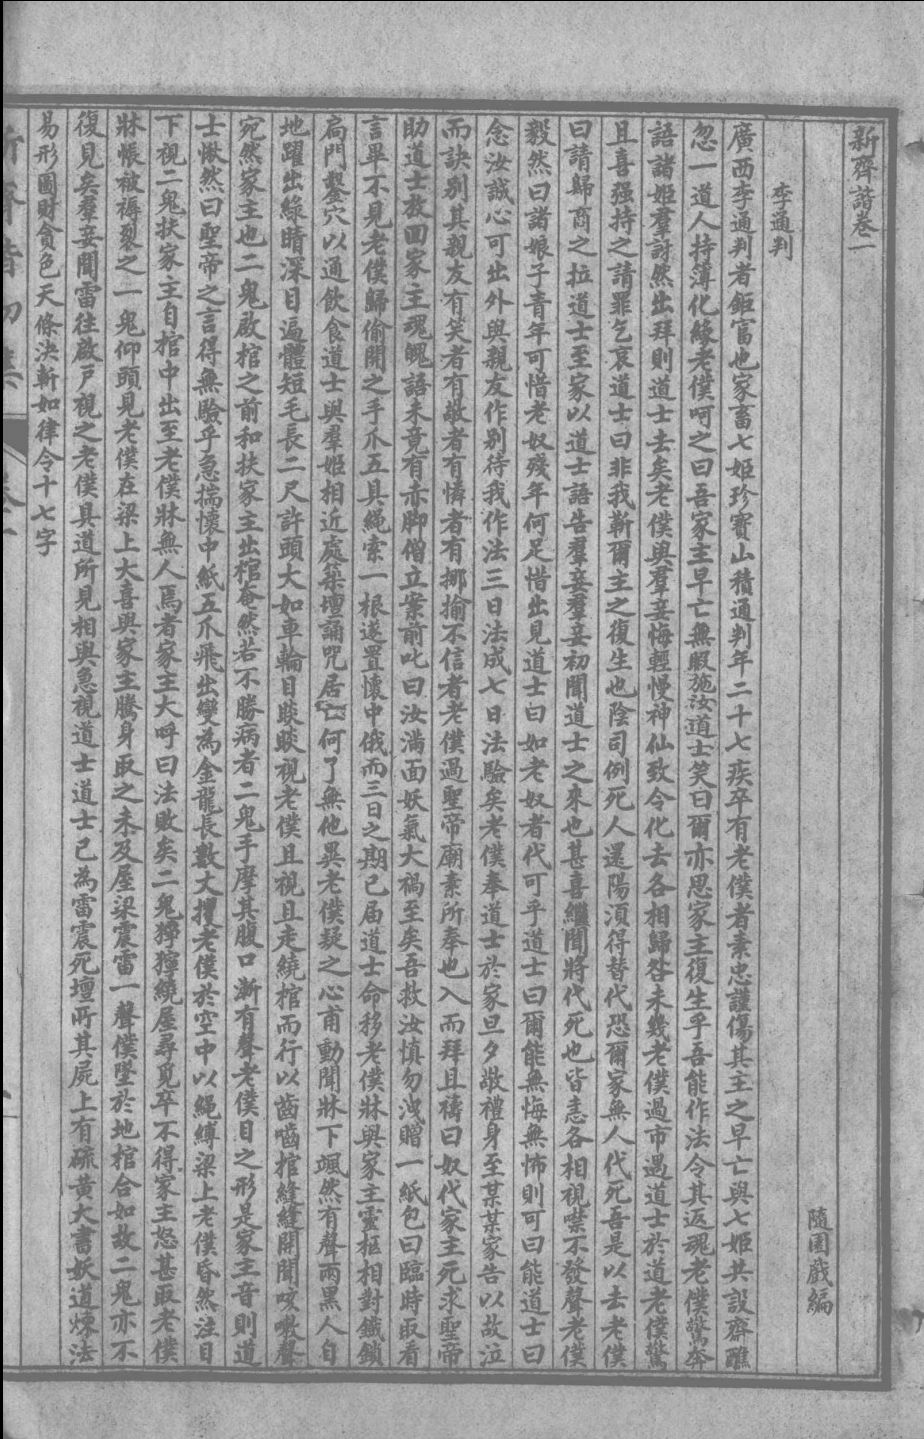 新齊諧卷一
隨園戲編
李通判
廣西李通判者鉅富也家畜七姬珍寶山積通判年二十七疾卒有老僕者素忠謹傷其主之早亡與七姬共設齋醮
忽一道人持薄化緣老僕呵之曰吾家主早亡無暇施汝道士笑曰爾亦思家主復生乎吾能作法令其返魂老僕驚奔
語諸姬羣訝然出拜則道士去矣老僕與羣妾悔輕慢神仙致令化去各相歸咎未幾老僕過市遇道士於道老僕驚
且喜强持之請罪乞哀道士曰非我靳爾主之復生也陰司例死人還陽須得替代恐爾家無人代死吾是以去老僕
曰請歸商之拉道士至家以道士語告羣妾羣妾初聞道士之來也甚喜繼聞將代死也皆恚各相視噤不發聲老僕
毅然曰諸娘子青年可惜老奴殘年何足惜出見道士曰如老奴者代可乎道士曰爾能無悔無怖則可曰能道士曰
念汝誠心可出外與親友作別待我作法三日法成七日法驗矣老僕奉道士於家旦夕敬禮身至某某家告以故泣
而訣別其親友有笑者有敬者有憐者有揶揄不信者老僕過聖帝廟素所奉也入而拜且禱曰奴代家主死求聖帝
助道士放回家主魂魄語未竟有赤脚僧立案前叱曰汝滿面妖氣大禍至矣吾救汝慎勿洩贈一紙包曰臨時取看
言畢不見老僕歸偷開之手爪五具繩索一根遂置懷中俄而三日之期已届道士命移老僕牀與家主靈柩相對鐵鎖
扃門鑿穴以通飲食道士與羣姬相近處築壇誦咒居亡何了無他異老僕疑之心甫動聞牀下颯然有聲兩黑人自
地躍出綠睛深目遍體短毛長二尺許頭大如車輪目睒睒視老僕且視且走繞棺而行以齒嚙棺縫縫開聞咳嗽聲
宛然家主也二鬼啟棺之前和扶家主出棺奄然若不勝病者二鬼手摩其腹口漸有聲老僕目之形是家主音則道
士愀然曰聖帝之言得無驗乎急揣懷中紙五爪飛出變為金龍長數丈攫老僕於空中以繩縛梁上老僕昏然注目
下視二鬼扶家主自棺中出至老僕牀無人焉者家主大呼曰法敗矣二鬼猙獰繞屋尋覓卒不得家主怒甚取老僕
牀帳被褥裂之一鬼仰頭見老僕在梁上大喜與家主騰身取之未及屋梁震雷一聲僕墜於地棺合如故二鬼亦不
復見矣羣妾聞雷往啟戶視之老僕具道所見相與急視道士道士已為雷震死壇所其屍上有硫黃大書妖道煉法
易形圖財貪色天條決斬如律令十七字